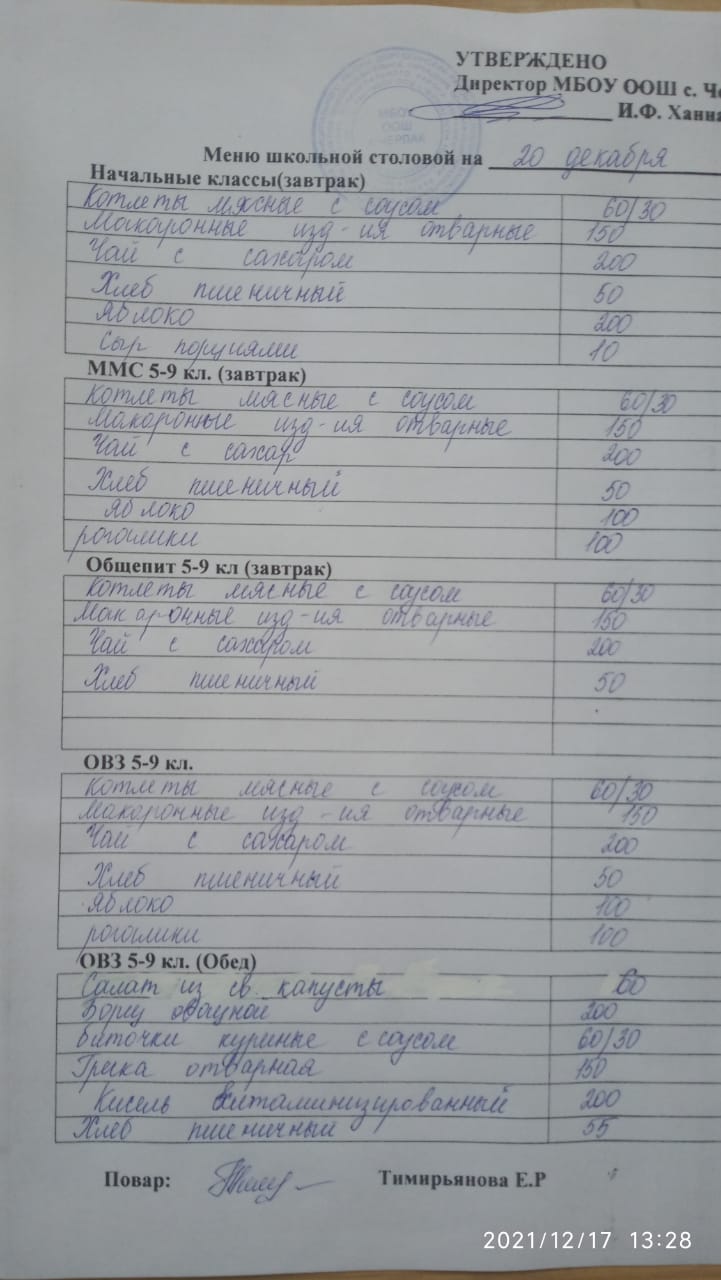 УТВЕРЖДЕНО
Директор МБОУ ООШ с. Че
И.Ф. Ханна
МБОУ
ООШ
Меню школьной столовой на 20 декабря
Начальные классы(завтрак)
Котлеты мясные с соусом 60/30
Макаронные изд-ия отварные 150
Чай с сахаром 200
Хлеб пшеничный 50
Яблоко 200
Сыр порциями 10
ММС 5-9 кл. (завтрак)
Котлеты мясные с соусом 60/30
Макаронные изд-ия отварные 150
Чай с сахар 200
Хлеб пшеничный 50
Яблоко 100
рогалики 100
Общепит 5-9 кл (завтрак)
Котлеты мясные с соусом 60/30
Макаронные изд-ия отварные 150
Чай с сахаром 200
Хлеб пшеничный 50
ОВЗ 5-9 кл.
Котлеты мясные с соусом 60/30
Макаронные изд-ия отварные 150
Чай с сахаром 200
Хлеб пшеничный 50
Яблоко 100
рогалики 100
ОВЗ 5-9 кл. (Обед)
Салат из св. капусты 60
Борщ овощной 200
Биточки куриные с соусом 60/30
Гречка отварная 150
Кисель витаминизированный 200
Хлеб пшеничный 55
Повар: Тимирьянова Е.Р
2021/12/17 13:28